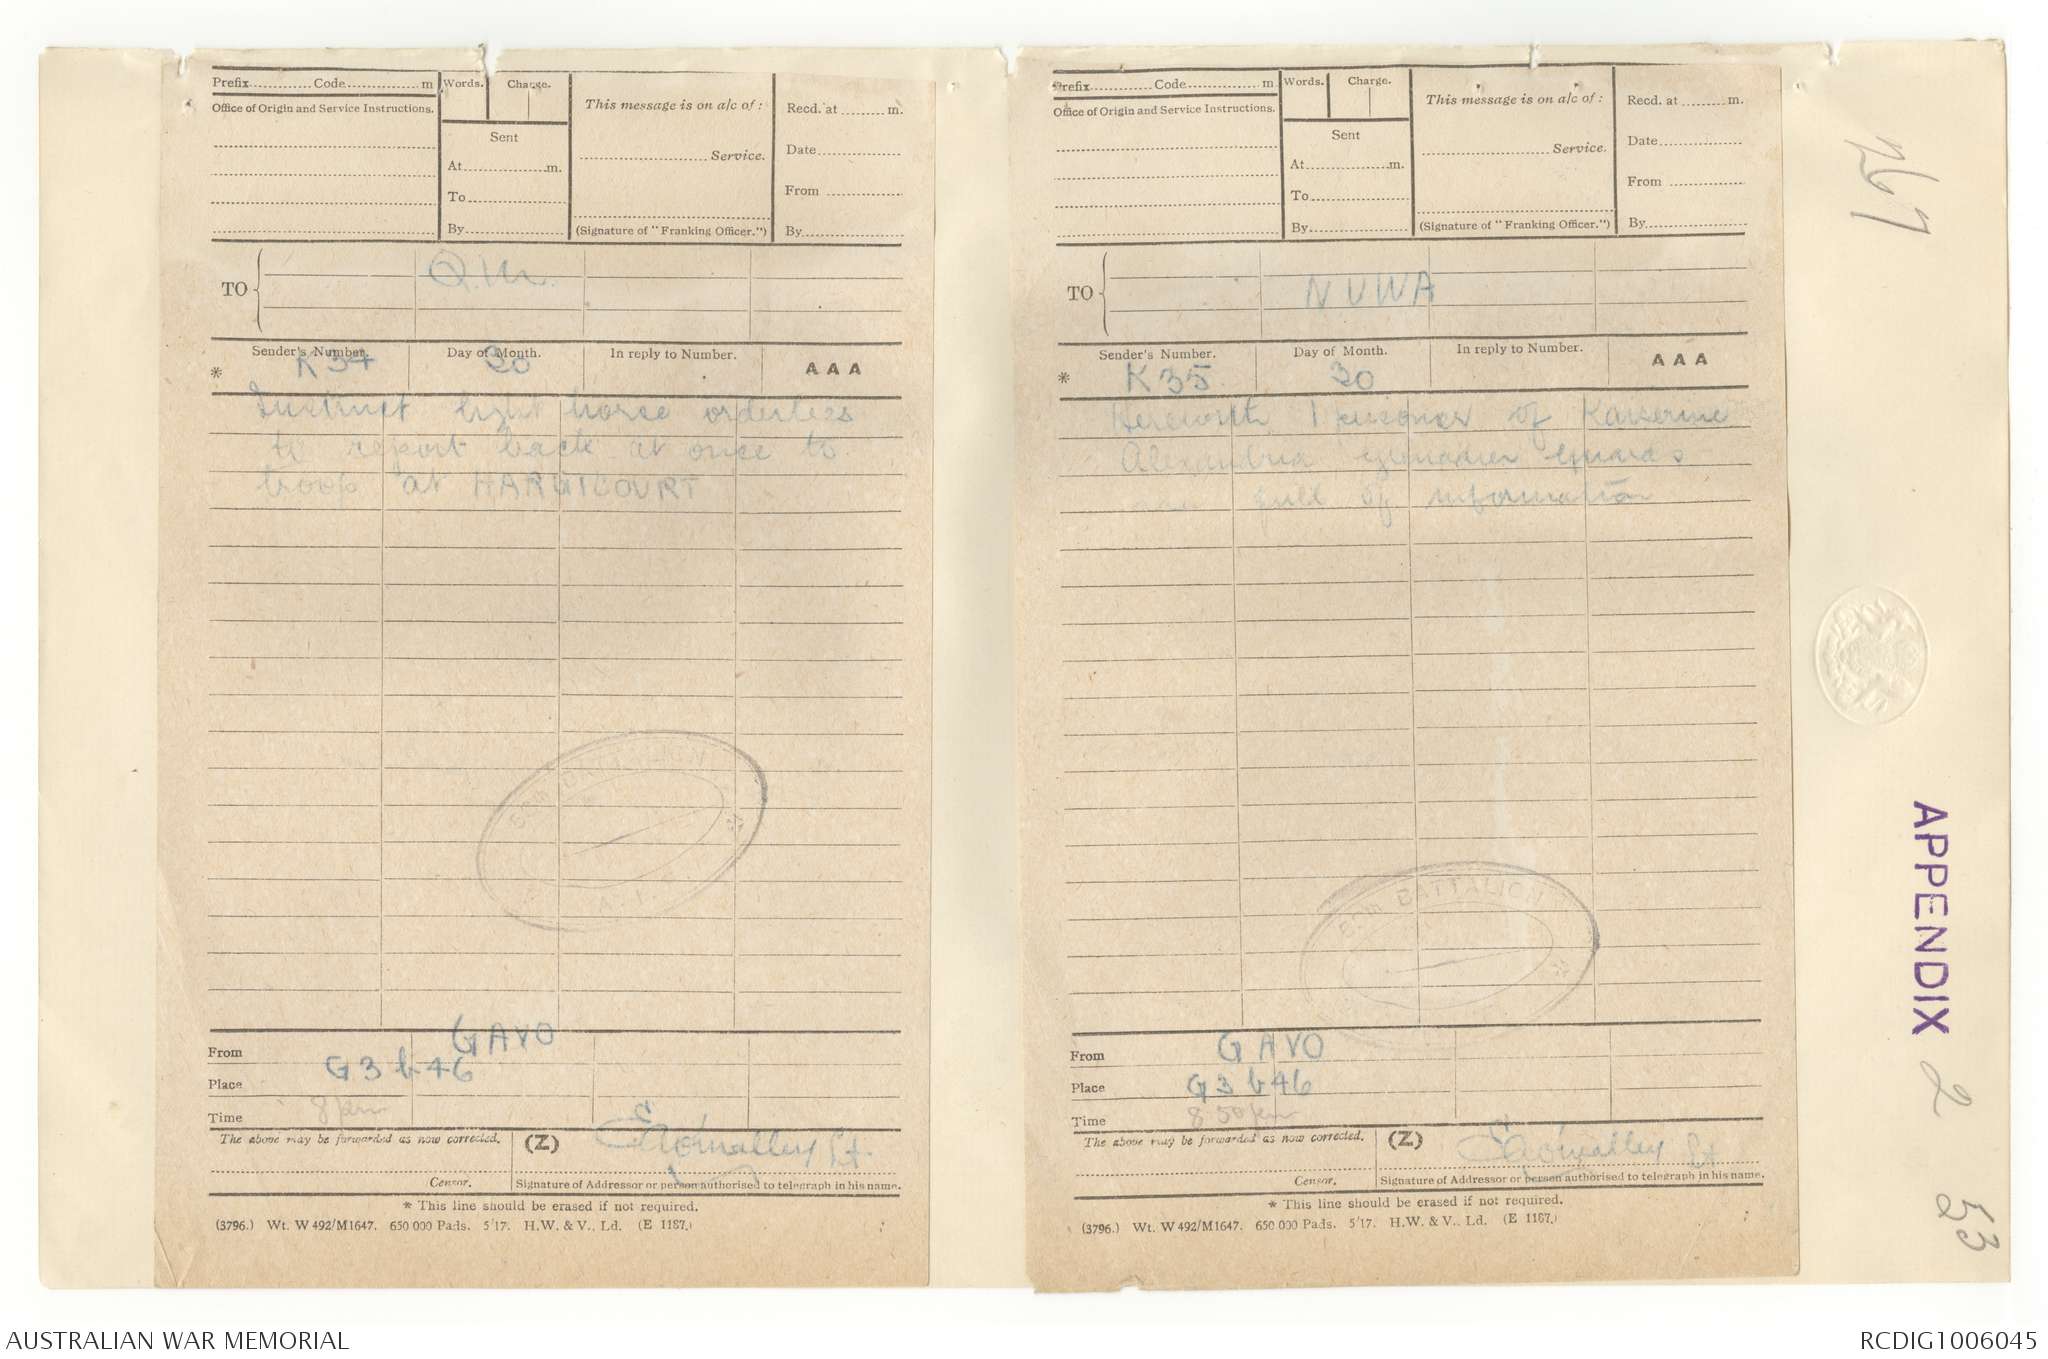 Prefix............Code............m
Words.
Charge.
This message is on a/c of :
Recd. at ........m.
Office of Origin and Service Instructions.
Sent
At............m.
To............
By............
............Service.
(Signature of "Franking Officer.")
Date............
From ............
By............
TO
Q.M.
Sender's Number.
Day of Month.
In reply to Number.
AAA
* K 34
30
Instruct light horse orderlies
to report back at once to
troop at HARGICOURT
From GAVO
Place G 3 b 46
Time 8 pm
The above may be forwarded as now corrected.
(Z)
Lt.
Censor.
Signature of Addressor or person authorised to telegraph in his name.
* This line should be erased if not required.
(3796.) Wt. W 492/M1647. 650 000 Pads. 5/17. H.W. & V., Ld. (E 1187.)
Prefix............Code............m
Words.
Charge.
This message is on a/c of :
Recd. at ........m.
Office of Origin and Service Instructions.
Sent
At............m.
To............
By............
............Service.
(Signature of "Franking Officer.")
Date............
From ............
By............
TO
NUWA
Sender's Number.
Day of Month.
In reply to Number.
AAA
* K 35.
30
Herewith 1 prisoner of Kaiserine
Alexandria Grenadier Guards
full of information
BATTALION
From GAVO
Place G 3 b 46
Time 8 50 pm
The above may be forwarded as now corrected.
(Z)
Lt
Censor.
Signature of Addressor or person authorised to telegraph in his name.
* This line should be erased if not required.
(3796.) Wt. W 492/M1647. 650 000 Pads. 5/17. H.W. & V., Ld. (E 1187.)
267
APPENDIX 2
53
AUSTRALIAN WAR MEMORIAL
RCDIG1006045